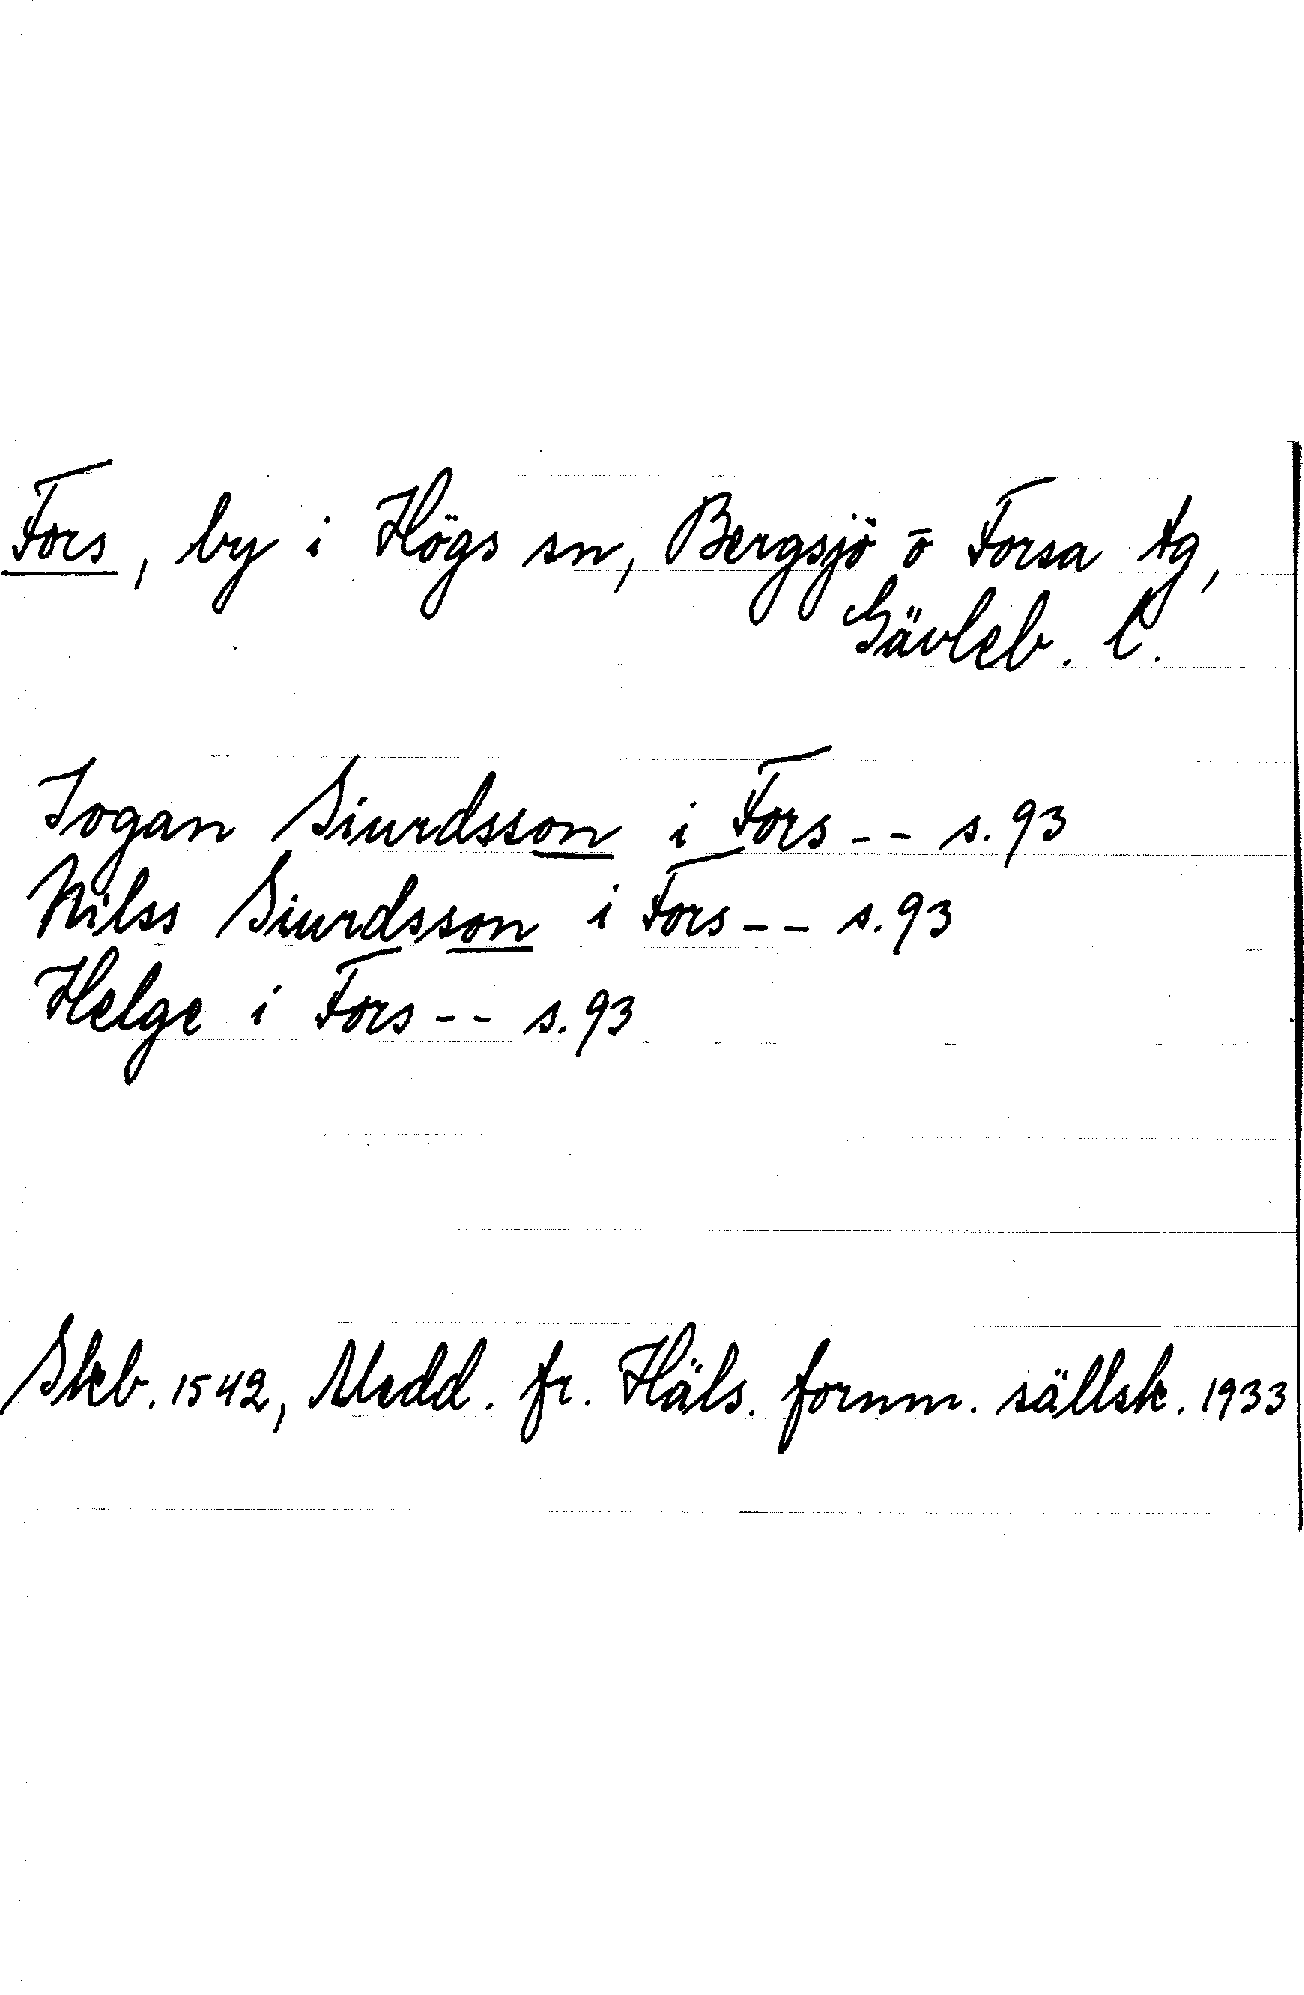 Fors, by i Högs sn, Bergsjö o Forsa tg,
Gävleb. l.
Jogan Siurdsson i Fors -- s. 93
Nilss Siurdsson i Fors -- s. 93
Helge i Fors -- s. 93
Skb. 1542, Medd. fr. Häls. fornm. sällsk. 1933